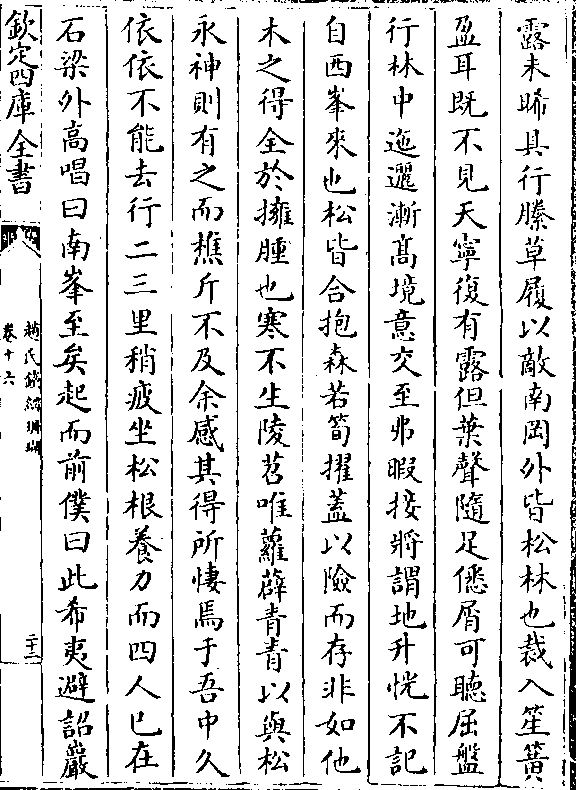 露未晞具行縢草履以敵南岡外皆松林也裁入笙簧
盈耳既不見天寧復有露但葉聲隨足僁屑可聽屈盤
行林中迤邐漸高境意交至弗暇接將謂地升恍不記
自西峯來也松皆合抱森若筍擢蓋以險而存非如他
木之得全於擁腫也寒不生陵苕唯蘿薜青青以與松
永神則有之而樵斤不及余感其得所悽焉于吾中久
依依不能去行二三里稍疲坐松根養力而四人已在
石梁外高唱曰南峯至矣起而前僕曰此希夷避詔巖
欽定四庫全書
趙氏鐵網珊瑚
卷十六
二十二